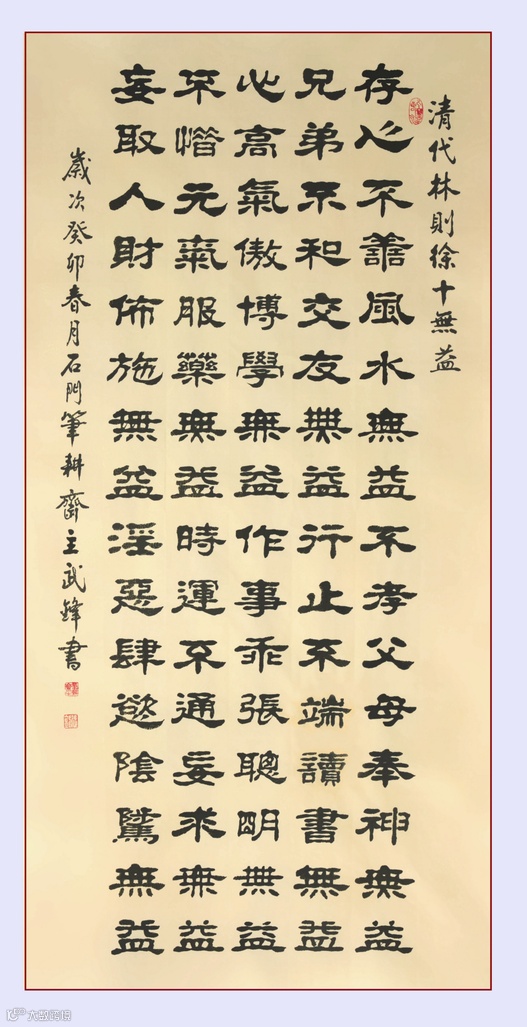 清代林則徐十無益
存心不善風水無益不孝父母奉神無益
兄弟不和交友無益行止不端讀書無益
心高氣傲博學無益作事乖張聰明無益
不惜元氣服藥無益時運不通妄求無益
妄取人財佈施無益淫惡肆慾陰騭無益
歲次癸卯春月石門筆耕齋主武鋒書
大数跨境